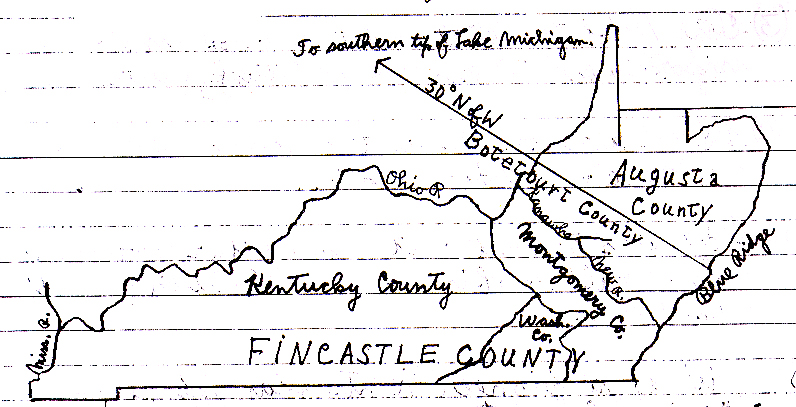 To southern tip of Lake Michigan.
30° N of W
Botetourt County
Augusta
County
Ohio R
Kanawha
New R.
Montgomery Co.
Blue Ridge
Kentucky County
Miss. R.
Wash.
Co.
FINCASTLE COUNTY